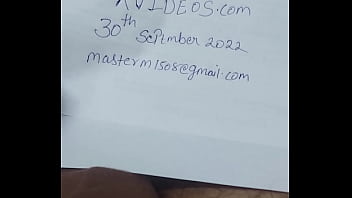 XVIDEOS.com
30th SepTmber 2022
masterm1508@gmail.com